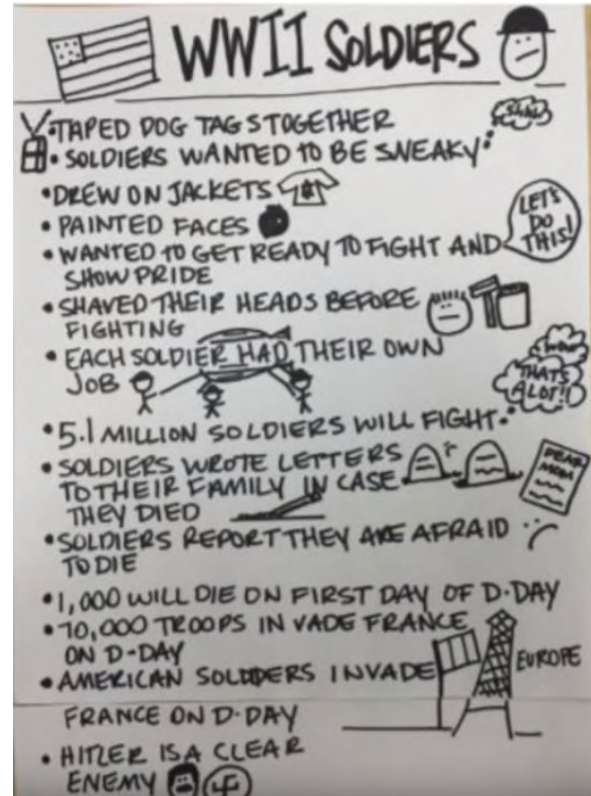 WWII SOLDIERS
• TAPED DOG TAGS TOGETHER
• SOLDIERS WANTED TO BE SNEAKY
• DREW ON JACKETS
• PAINTED FACES
• WANTED TO GET READY TO FIGHT AND
SHOW PRIDE
LET'S
DO
THIS!
• SHAVED THEIR HEADS BEFORE
FIGHTING
• EACH SOLDIER HAD THEIR OWN
JOB
WOW
THATS
ALOT!!
• 5.1 MILLION SOLDIERS WILL FIGHT
• SOLDIERS WROTE LETTERS
TO THEIR FAMILY IN CASE
THEY DIED
DEAR
MOM
• SOLDIERS REPORT THEY ARE AFRAID
TO DIE
• 1,000 WILL DIE ON FIRST DAY OF D-DAY
• 70,000 TROOPS INVADE FRANCE
ON D-DAY
• AMERICAN SOLDIERS INVADE
FRANCE ON D-DAY
EUROPE
• HITLER IS A CLEAR
ENEMY